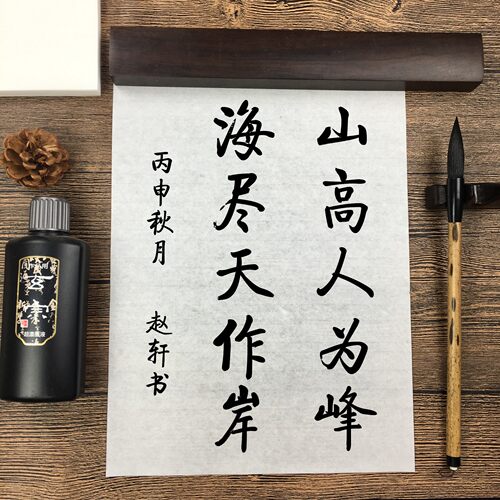 山高人为峰
海尽天作岸
丙申秋月 赵轩书
玄宗